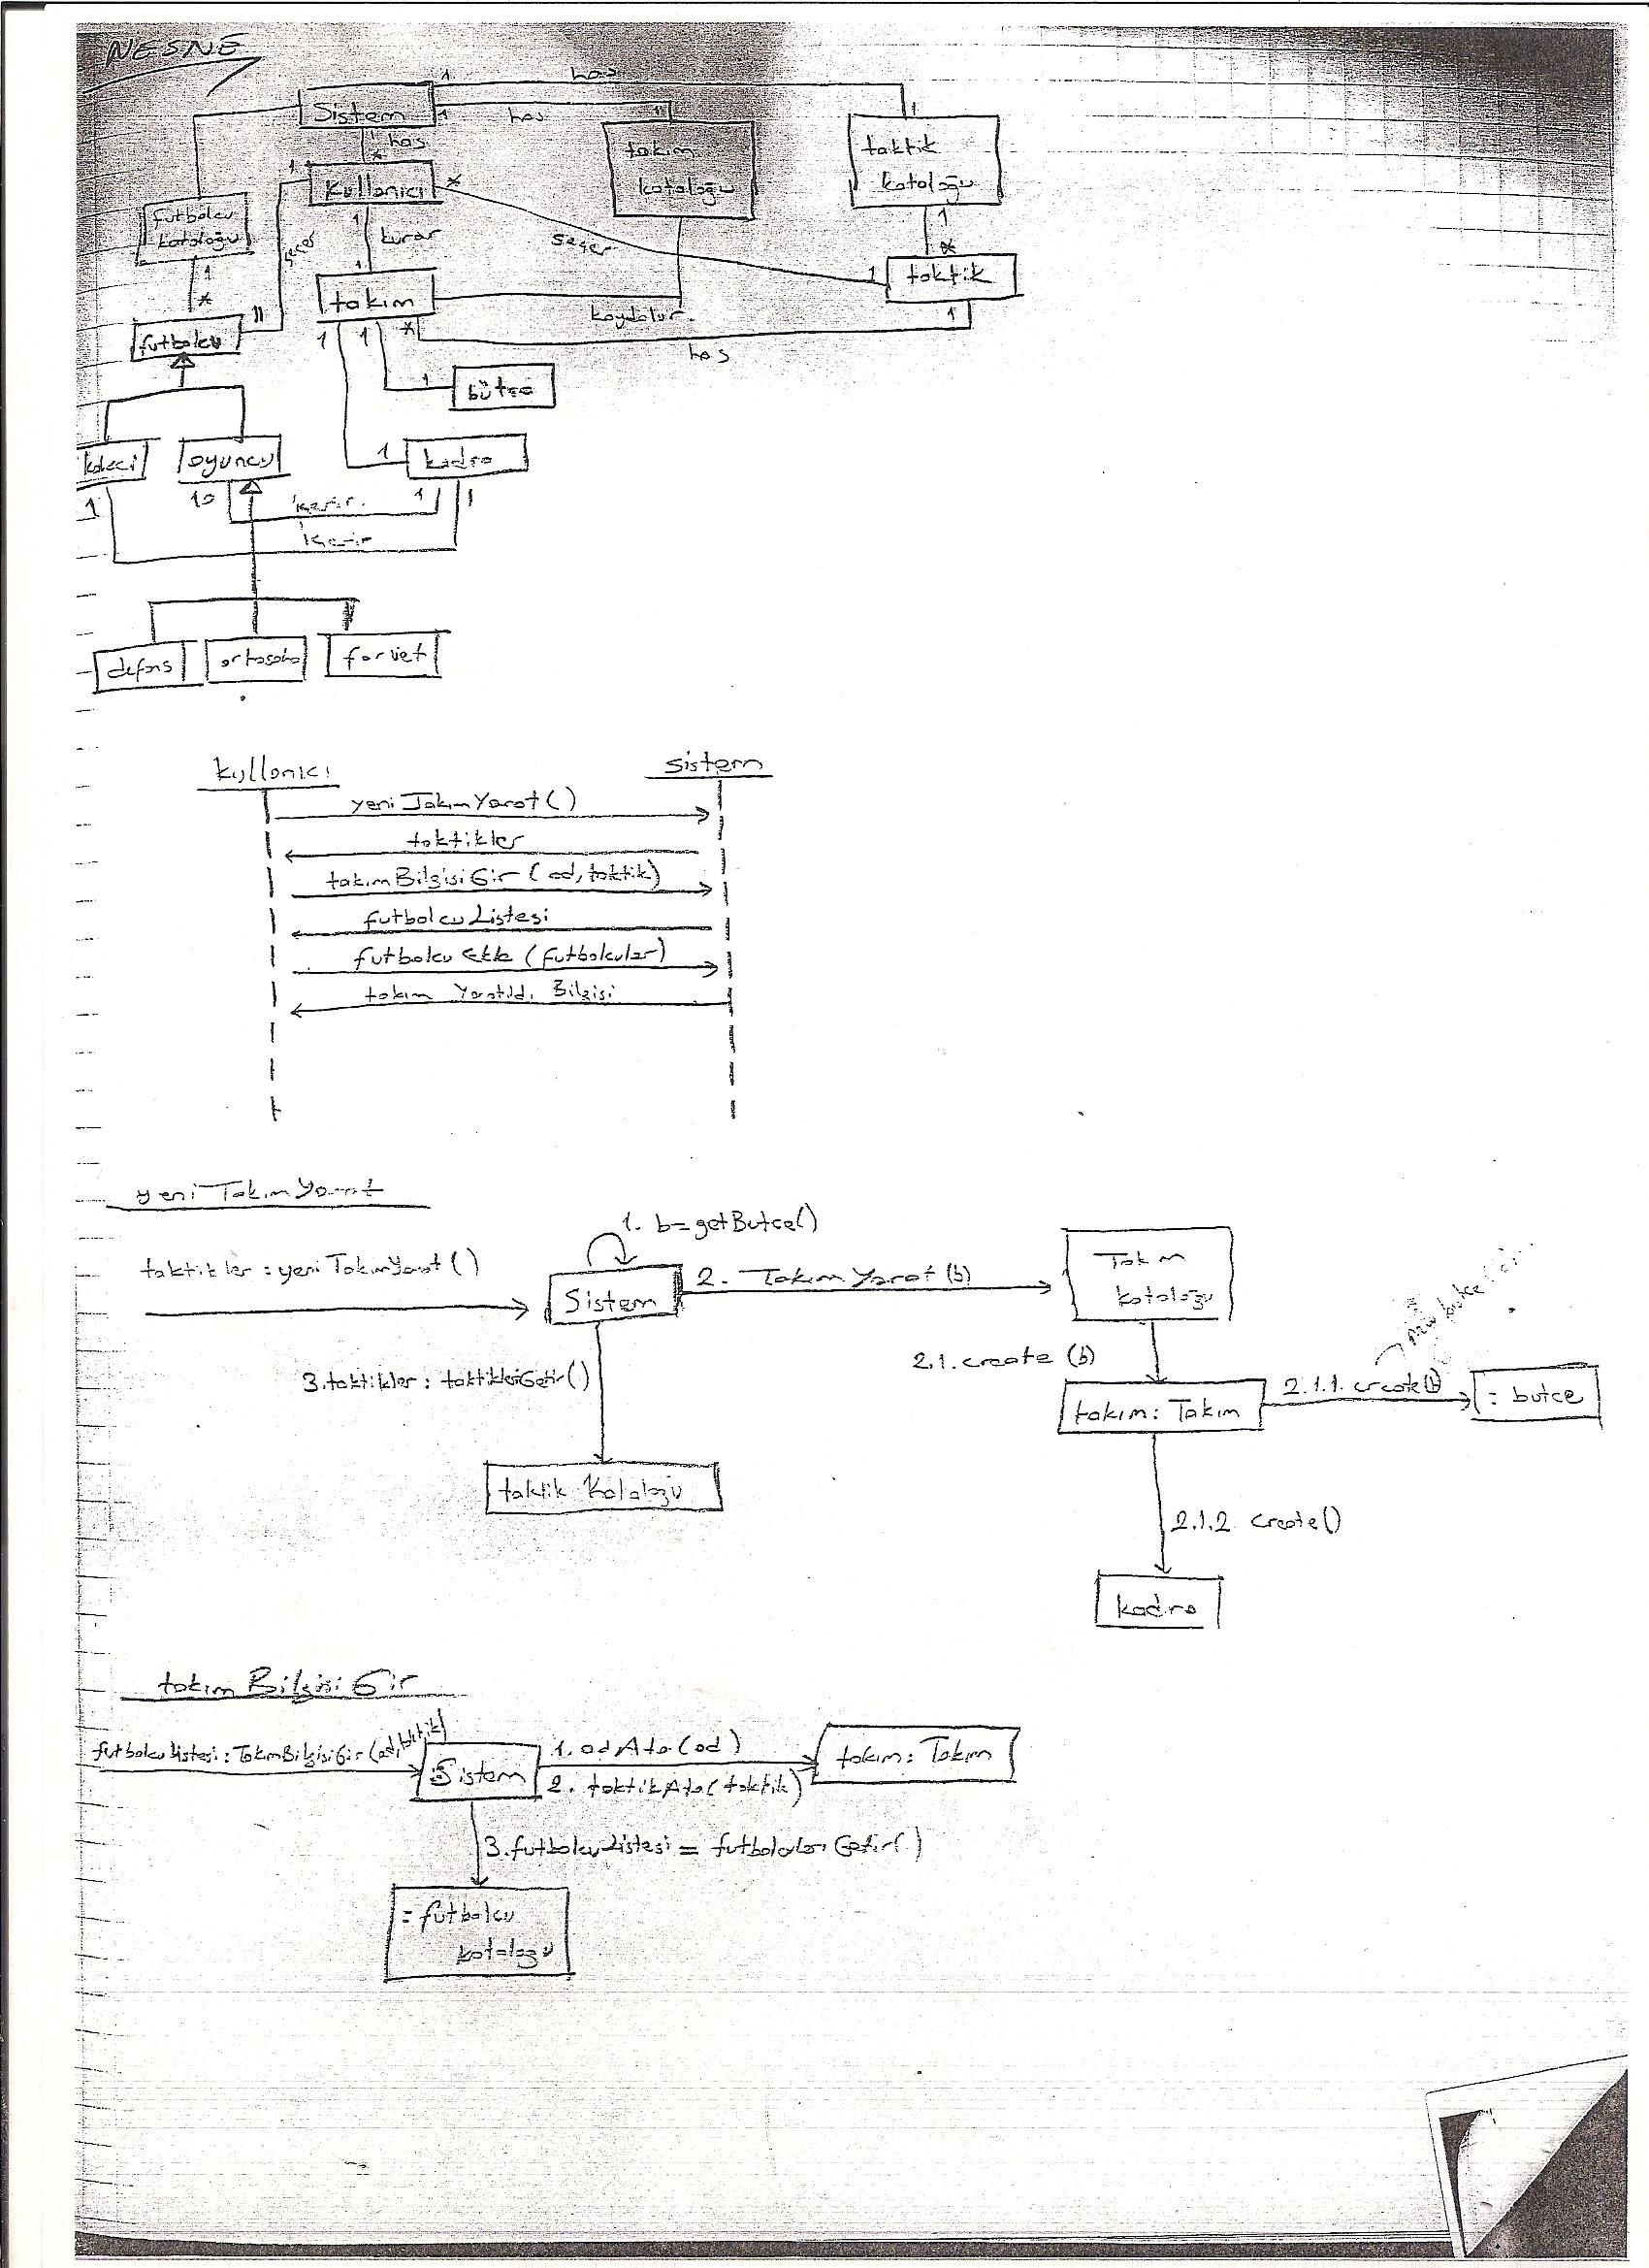 NESNE
1 has
Sistem
1 has 1
1
has
*
takım
kataloğu
taktik
kataloğu
1
Kullanıcı
*
futbolcu
kataloğu
seçer
1
kurar
seçer
1
*
1
*
1
takım
1
taktik
futbolcu
11
1 1 *
kaydolur.
1
has
1
bütçe
kaleci
oyuncu
1
kadro
1
10
içerir.
1
1
içerir
defans
ortasaha
forvet
kullanıcı
sistem
yeniTakımYarat()
taktikler
takımBilgisiGir(ad, taktik)
futbolcuListesi
futbolcu Ekle (futbolcular)
takım Yaratıldı Bilgisi
yeniTakımYarat
1. b=getButce()
taktikler : yeniTakımYarat()
Sistem
2. TakımYarat(b)
Takım
kataloğu
3.taktikler : taktikleriGetir()
2.1.create (b)
takım: Takım
2.1.1. create(b)
: butce
taktik Kataloğu
2.1.2. create()
kadro
takımBilgisiGir
futbolcuListesi : TakımBilgisiGir(ad,taktik)
:Sistem
1.adAta(ad)
2. taktikAta(taktik)
takım: Takım
3.futbolcuListesi = futbolcularıGetir()
: futbolcu
kataloğu